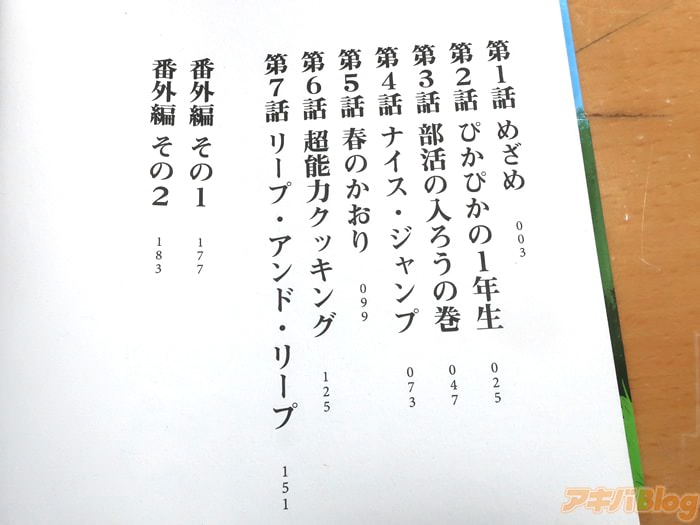 第1話 めざめ 003
第2話 ぴかぴかの1年生 025
第3話 部活の入ろうの巻 047
第4話 ナイス・ジャンプ 073
第5話 春のかおり 099
第6話 超能力クッキング 125
第7話 リープ・アンド・リープ 151
番外編 その1 177
番外編 その2 183
アキバBlog